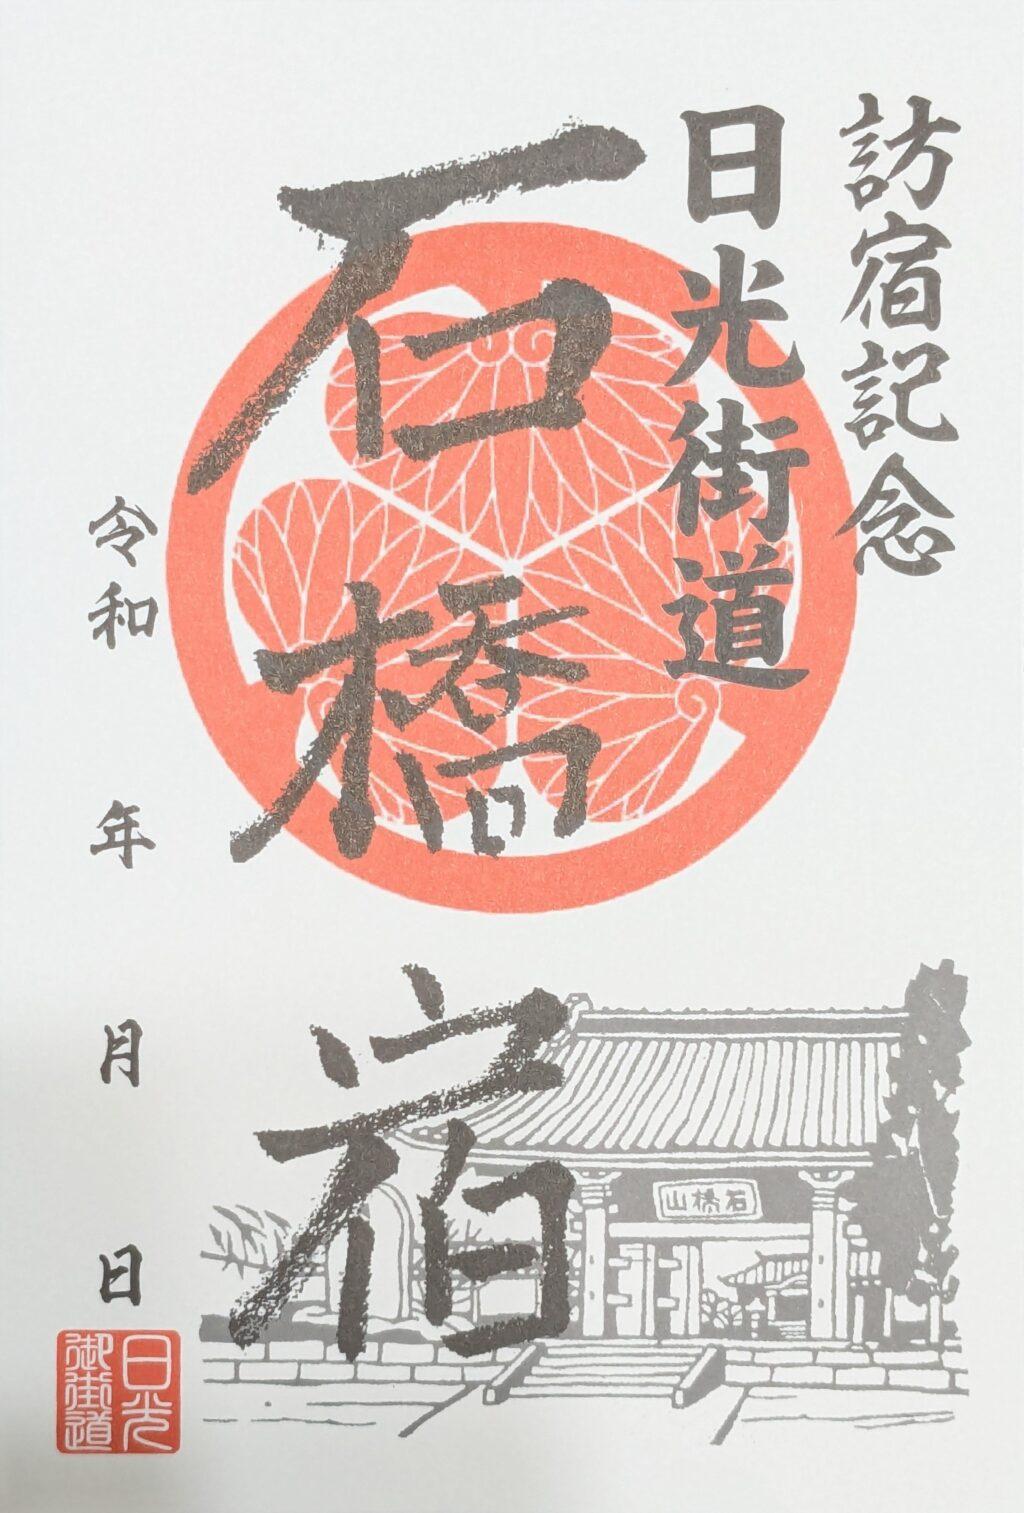 訪宿記念
日光街道
石橋宿
令和 年 月 日
山橋石
日光
御街道